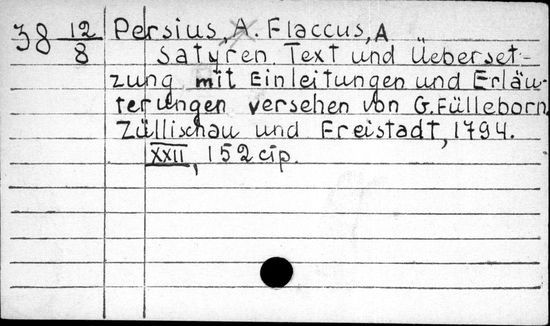 38 12/8 Persius, A. Flaccus, A
Satyren Text und Ueberset-
zung mit Einleitungen und Erläu-
terungen versehen von G. Fülleborn.
Züllischau und Freistadt, 1794.
XXII, 152 cip.